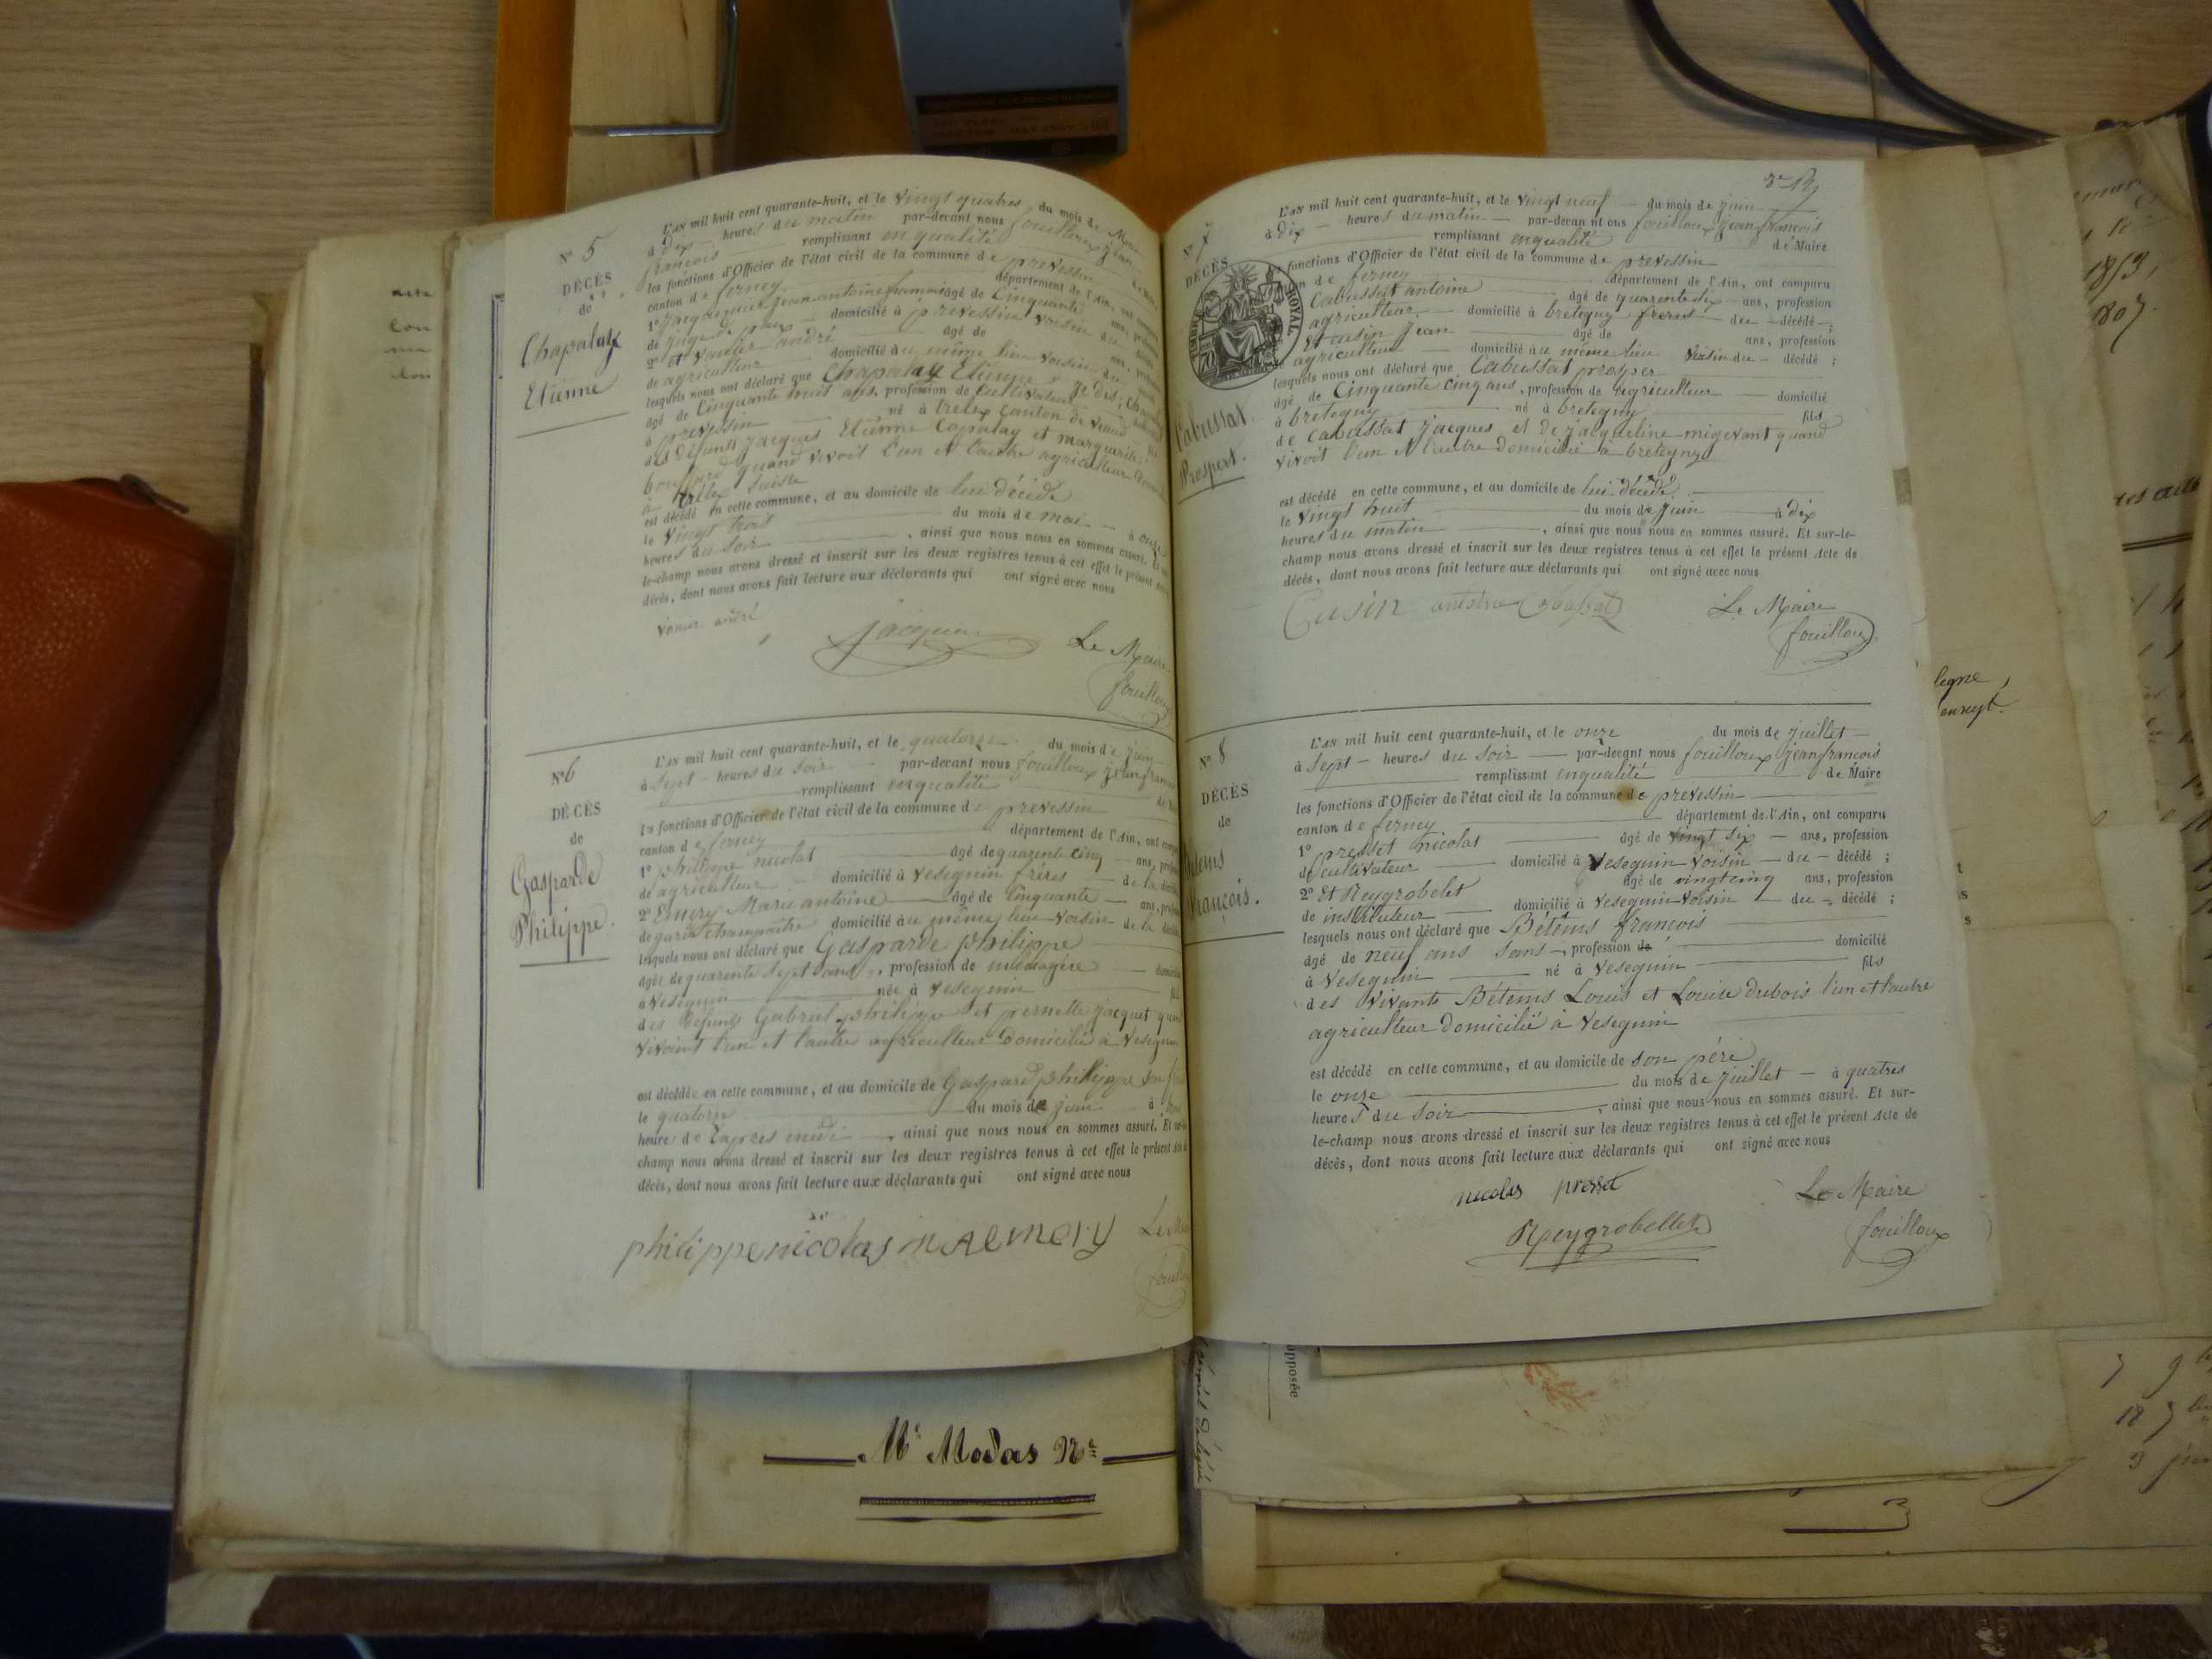 N° 5
DÉCÈS
de
Chapalay
Etienne
L'AN mil huit cent quarante-huit, et le vingt quatres du mois de Mai
à Dix heures du matin par-devant nous fouilloux jean
francois remplissant en qualité
les fonctions d'Officier de l'état civil de la commune de prevessin
canton de ferney département de l'Ain, ont comparu
1° jacquemier jean antoine francois âgé de Cinquante ans, profession
de juge de paix domicilié à prevessin voisin du
2° et vanier andré âgé de ans, profession
de agriculteur domicilié au même lieu voisin du
lesquels nous ont déclaré que Chapalay Etienne
âgé de Cinquante huit ans, profession de cultivateur
à prevessin né à trelex Canton de vaud
des défunts jacques Etienne Capalay et marguerite
quand vivoit l'un et l'autre agriculteur
à trelex suisse
est décédé en cette commune, et au domicile de lui décédé
le vingt trois du mois de mai à onze
heures du soir , ainsi que nous nous en sommes assuré. Et sur-
le-champ nous avons dressé et inscrit sur les deux registres tenus à cet effet le présent
décès, dont nous avons fait lecture aux déclarants qui ont signé avec nous
vanier andré
Le Maire
fouilloux
N° 6
DÉCÈS
de
Gasparde
Philippe.
L'AN mil huit cent quarante-huit, et le quatorze du mois de juin
à Sept heures du soir par-devant nous fouilloux jean francois
remplissant en qualité
les fonctions d'Officier de l'état civil de la commune de prevessin
canton de ferney département de l'Ain, ont comparu
1° philippe nicolas âgé de quarente cinq ans, profession
de agriculteur domicilié à vesegnin frères de la
2° Emery Marie antoine âgé de Cinquante ans, profession
de garde champaitre domicilié au même lieu voisin de la
lesquels nous ont déclaré que Gasparde philippe
âgée de quarente sept ans, profession de ménagère domicilié
à vesegnin née à vesegnin
des défunts Gabriel philippe et pernette jacquet quand
vivoient l'un et l'autre agriculteur domicilié à vesegnin
est décédée en cette commune, et au domicile de Gaspard philippe son
le quatorze du mois de juin à
heure de l'apres midi , ainsi que nous nous en sommes assuré. Et sur-le-
champ nous avons dressé et inscrit sur les deux registres tenus à cet effet le présent
décès, dont nous avons fait lecture aux déclarants qui ont signé avec nous
philippe nicolas m A emery
Le Maire
N° 7
DÉCÈS
ROYAL
Cabussat
Prospert.
L'AN mil huit cent quarante-huit, et le vingt neuf du mois de juin
à dix heures du matin par-devant nous fouilloux jean francois
remplissant en qualité de Maire
fonctions d'Officier de l'état civil de la commune de prevessin
de ferney département de l'Ain, ont comparu
Cabussat antoine âgé de quarente six ans, profession
agriculteur domicilié à bretegny freres du décédé ;
Et cusin jean âgé de ans, profession
agriculteur domicilié au même lieu voisin du décédé ;
lesquels nous ont déclaré que Cabussat prosper
âgé de Cinquante cinq ans, profession de agriculteur domicilié
à bretegny né à bretegny fils
de Cabussat jacques et de jacqueline migevant quand
vivoit l'un et l'autre domicilié à bretegny
est décédé en cette commune, et au domicile de lui décédé
le vingt huit du mois de juin à dix
heures du matin , ainsi que nous nous en sommes assuré. Et sur-le-
champ nous avons dressé et inscrit sur les deux registres tenus à cet effet le présent Acte de
décès, dont nous avons fait lecture aux déclarants qui ont signé avec nous
Cusin
Le Maire
fouilloux
N° 8
DÉCÈS
de
Bétems
François.
L'AN mil huit cent quarante-huit, et le onze du mois de juillet
à Sept heures du soir par-devant nous fouilloux jean francois
remplissant en qualité de Maire
les fonctions d'Officier de l'état civil de la commune de prevessin
canton de ferney département de l'Ain, ont comparu
1° presset nicolat âgé de vingt six ans, profession
de Cultivateur domicilié à vesegnin voisin du décédé ;
2° Et Reygrobelet âgé de vingt cinq ans, profession
de instituteur domicilié à vesegnin voisin du décédé ;
lesquels nous ont déclaré que Bétems francois
âgé de neuf ans sans profession de domicilié
à vesegnin né à vesegnin fils
des vivants Bétems Louis et Louise dubois l'un et l'autre
agriculteur domicilié à vesegnin
est décédé en cette commune, et au domicile de son père
le onze du mois de juillet à quatres
heures du soir , ainsi que nous nous en sommes assuré. Et sur-
le-champ nous avons dressé et inscrit sur les deux registres tenus à cet effet le présent Acte de
décès, dont nous avons fait lecture aux déclarants qui ont signé avec nous
nicolas presset
Reygrobellet
Le Maire
fouilloux
Modas
opposée
1813,
1807.
3